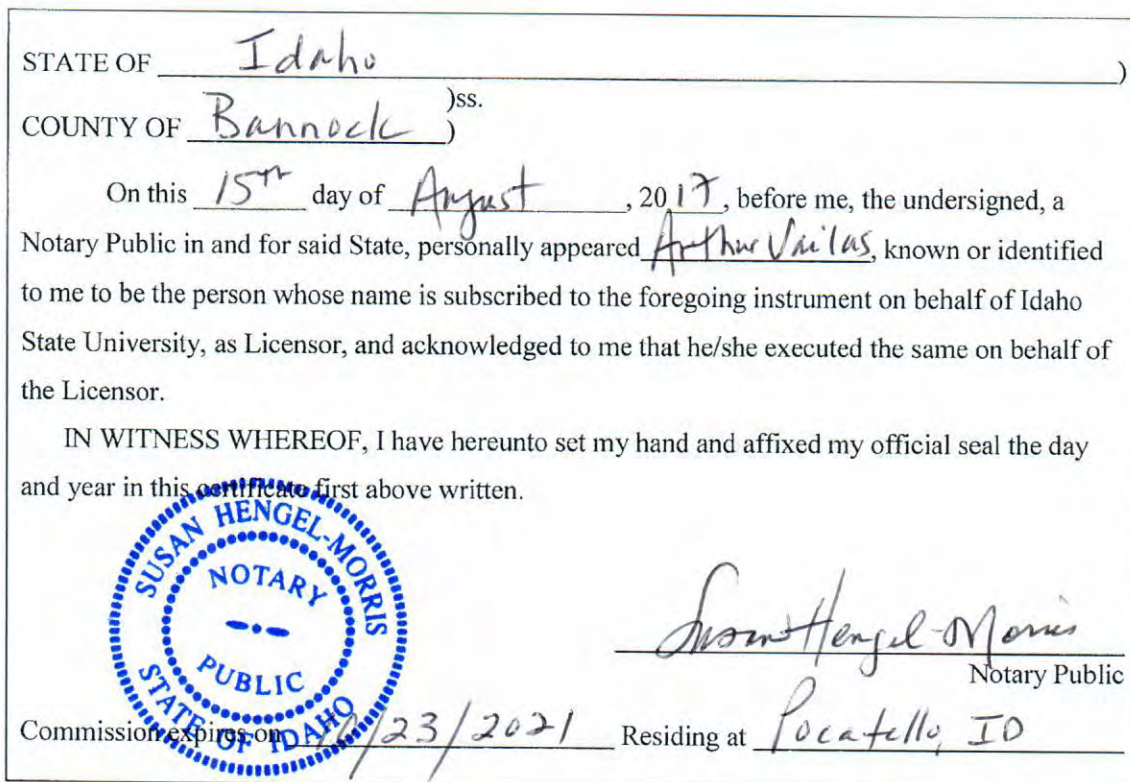 STATE OF Idaho )
)ss.
COUNTY OF Bannock )
On this 15th day of August, 2017, before me, the undersigned, a
Notary Public in and for said State, personally appeared Arthur Vailas, known or identified
to me to be the person whose name is subscribed to the foregoing instrument on behalf of Idaho
State University, as Licensor, and acknowledged to me that he/she executed the same on behalf of
the Licensor.
IN WITNESS WHEREOF, I have hereunto set my hand and affixed my official seal the day
and year in this certificate first above written.
SUSAN HENGEL-MORRIS
NOTARY
PUBLIC
STATE OF IDAHO
Susan Hengel-Morris
Notary Public
Commission expires on /23/2021 Residing at Pocatello, ID